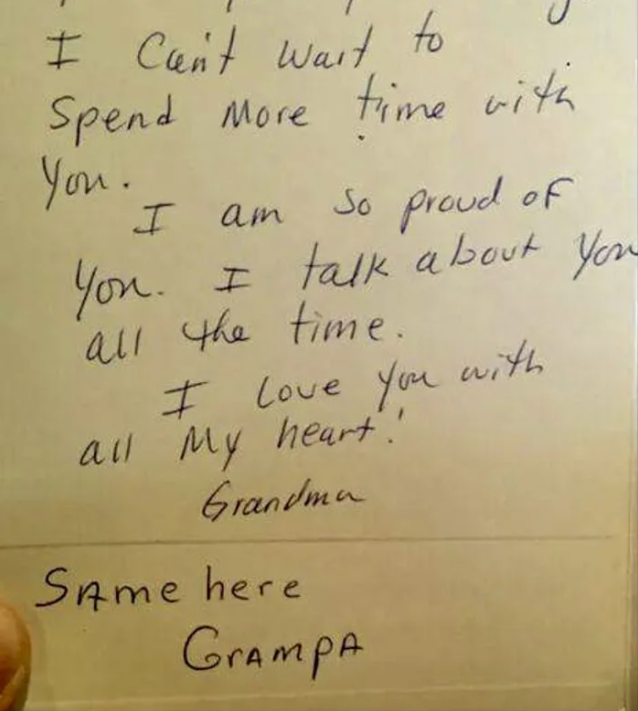 I Can't wait to
Spend More time with
you.
I am so proud of
you. I talk about you
all the time.
I Love you with
all My heart!
Grandma
SAme here
GrAmpA